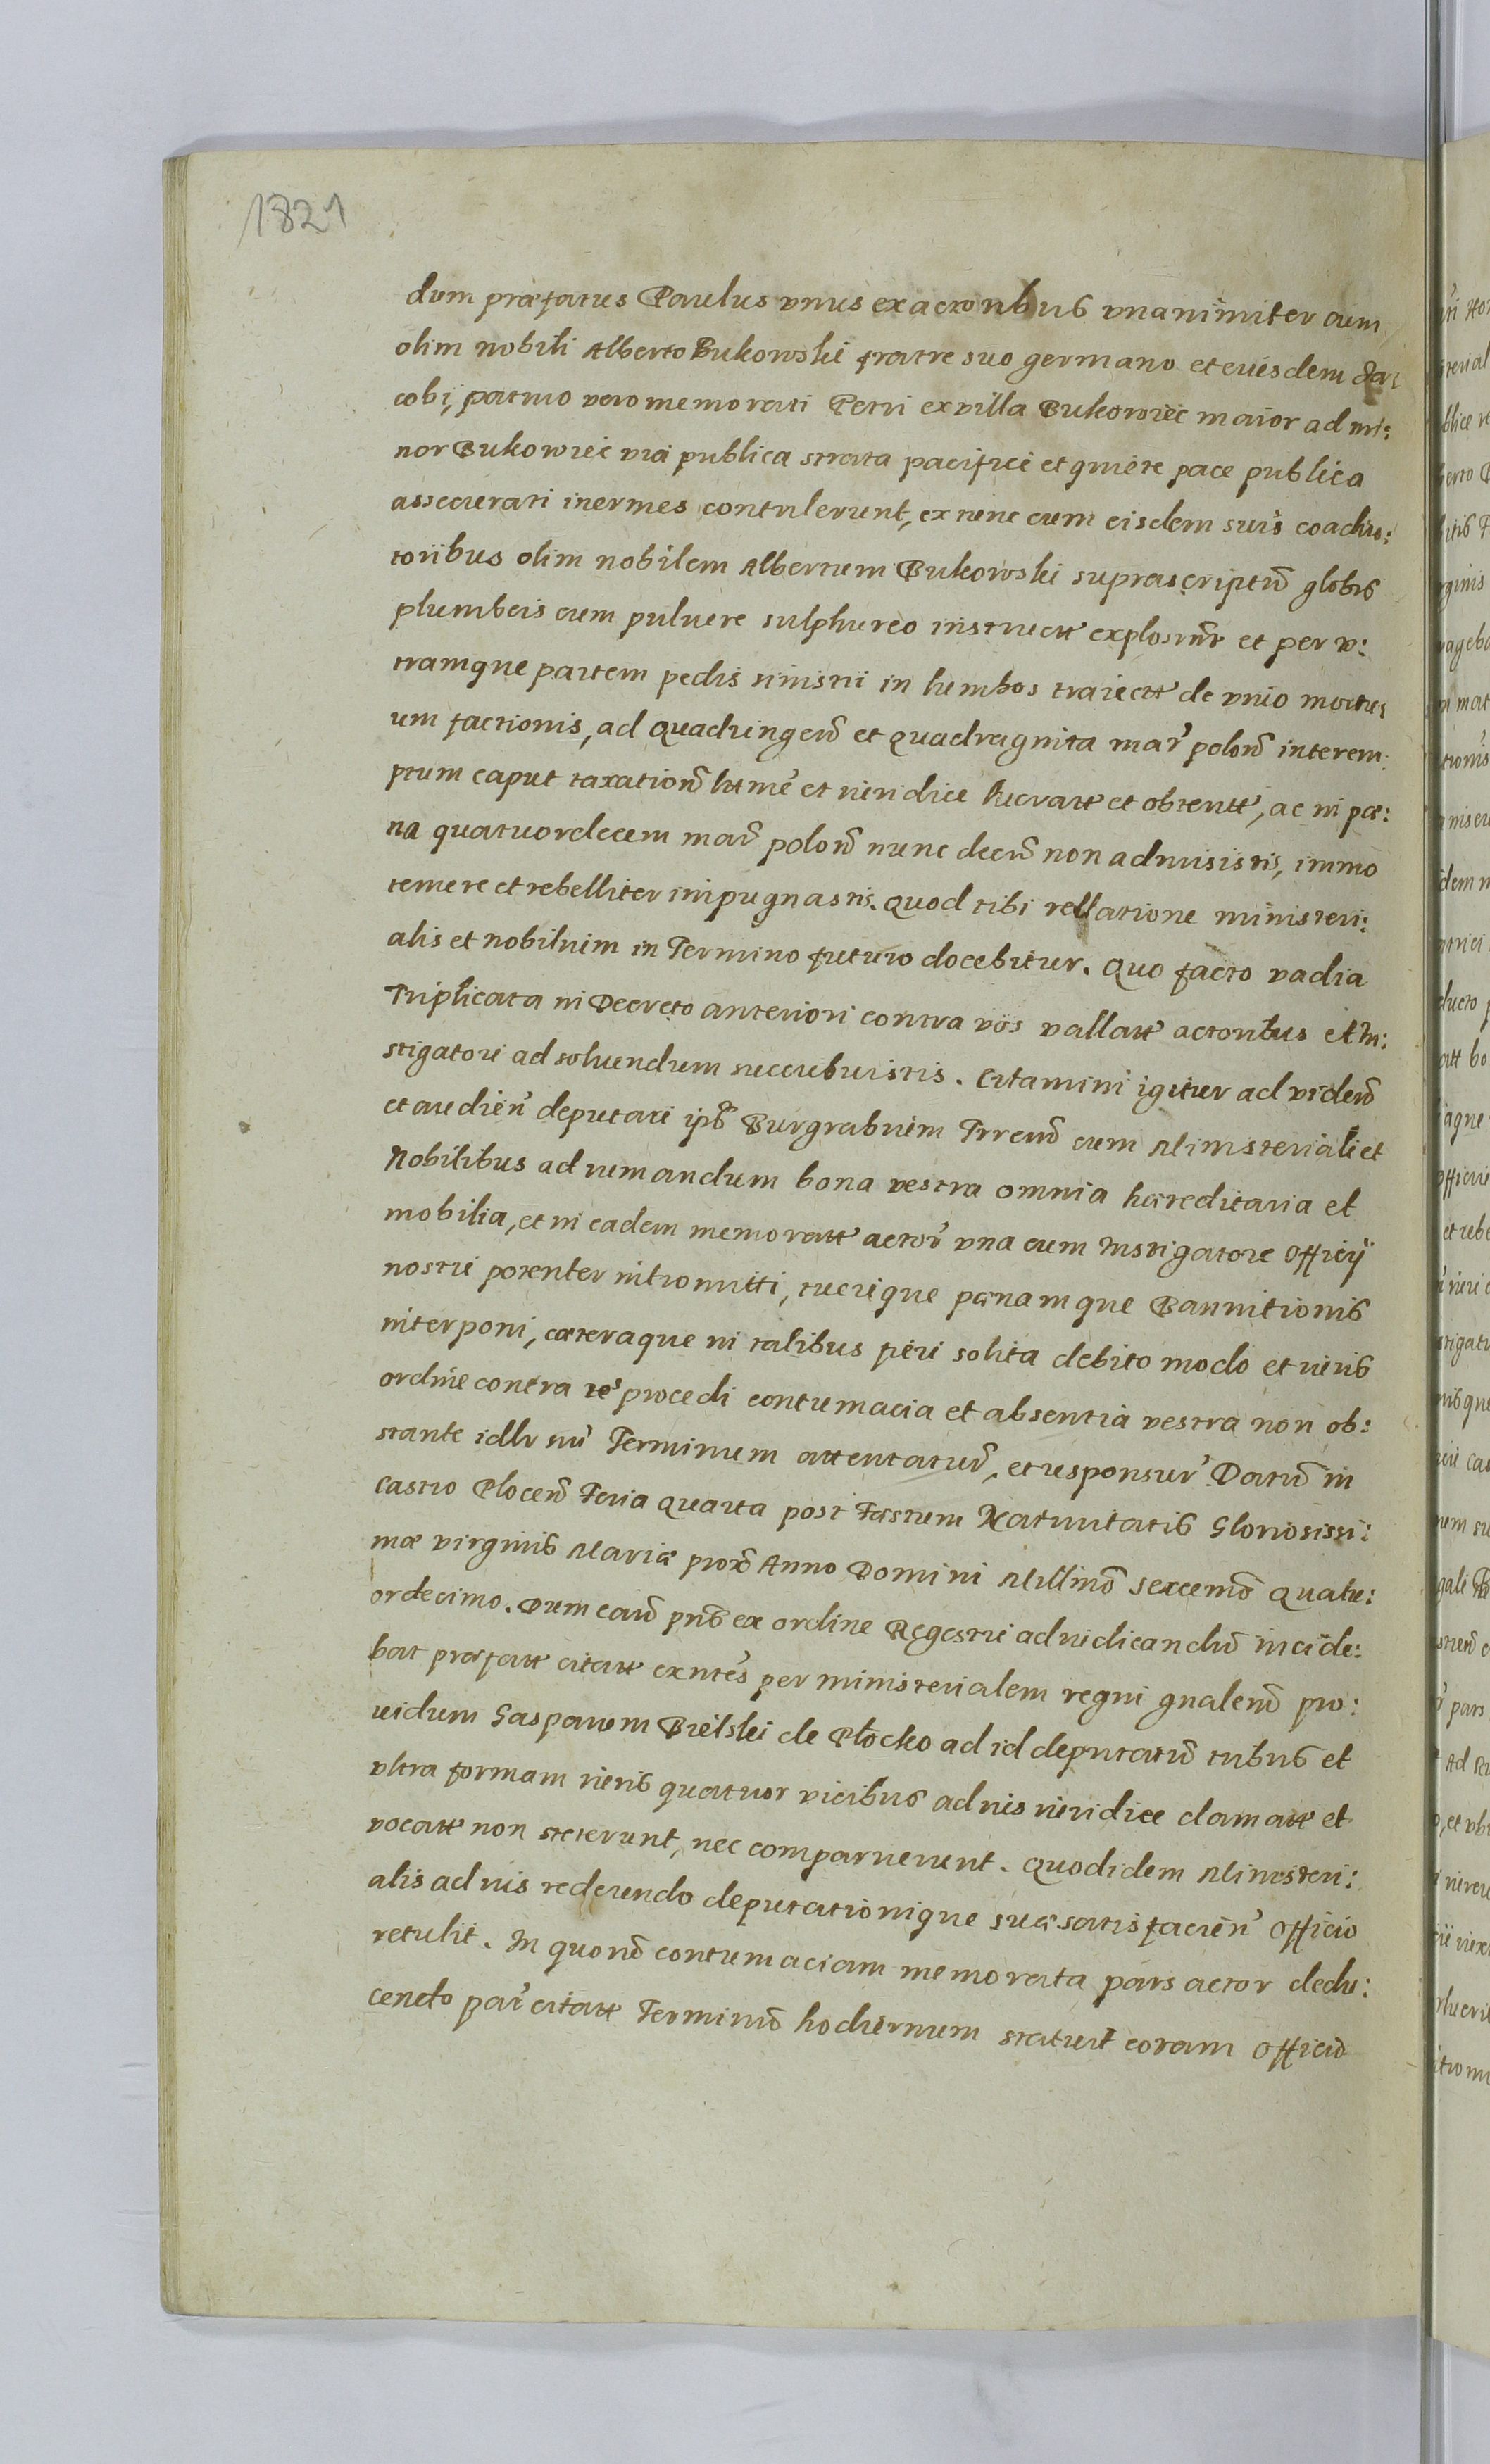 1821
dum præfatus Paulus vnus ex actoribus vnanimiter cum
olim nobili Alberto Bukowski fratre suo germano et eiusdem Ja:
cobi, patruo vero memorati Petri ex villa Bukowiec maior ad mi:
nor Bukowiec via publica strata pacifice et quiete pace publica
assecurati inermes contulerunt, ex tunc cum eisdem suis coadiu:
toribus olim nobilem Albertum Bukowski suprascriptũ globis
plumbeis cum puluere sulphureo instructt explosim̃t et per v:
tramque partem pedis sinistri in lumbos traiectt de vnio mortu:
um factionis, ad Quadringeñ et quadraginta mar̃ poloñ interem:
ptum caput taxationẽ lttme et iuridice lucratt et obtentt, ac in pæ:
na quatuordecem mar̃ poloñ nunc decuñ non admisistis, immo
temere et rebelliter impugnastis. Quod tibi rellatione ministeri:
alis et nobilium in Termino futuro docebitur. Quo facto vadia
Triplicata in Decreto anteriori contra vos vallatt actoribus et In:
stigatori ad soluendum succubuistis. Citamini igitur ad videñ
et audieñ deputari ipsũ Burgrabium Trrenũ cum Ministeriali et
Nobilibus ad iumandum bona vestra omnia hæreditaria et
mobilia, et in eadem memoratt actor̃ vna cum Instigatore Officÿ
nostri potenter intromitti, tuerique pænamque Bannitionis
interponi, cæteraque in talibus fieri solita debito modo et iuris
ordine contra vos procedi contumacia et absentia vestra non ob:
stante idlr sũ Terminum attentaturũ, et responsur̃ Datũ in
Castro Ploceñ Feria Quarta post Festum Natiuitatis Gloriosissi:
mæ virginis Mariæ proxõ Anno Domini Millimõ sexcemõ Quatu:
ordecimo. Dum eaũ pñs ex ordine Regestri adiudicandũ incide:
bat præfatt citatt exntes per ministerialem regni gnalem̃ pro:
uidum Gasparem Bielski de Płocko ad id deputatũ tribus et
vltra formam iuris quatuor vicibus ad ius iuridice clamatt et
vocatt non steterunt, nec comparuerunt. Quod idem Ministeri:
alis ad ius redeundo deputationique suæ satisfacieñ Officio
retulit. In quorũ contumaciam memorata pars actor dedu:
cendo par̃ citatt Terminũ hodiernum statuit coram Officio